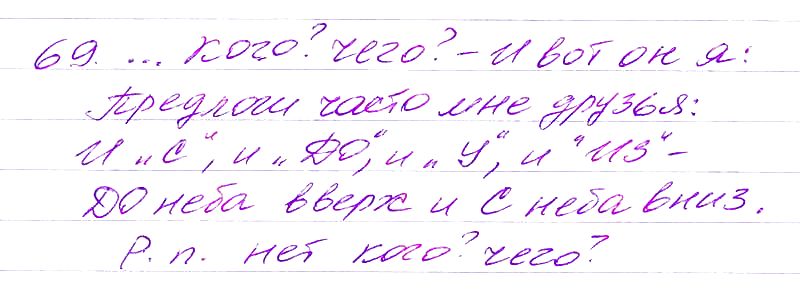 69. ... кого? чего? – И вот он я:
Предлоги часто мне друзья:
И „С“, и „ДО“, и „У“, и "ИЗ" –
ДО неба вверх и С неба вниз.
Р. п. нет кого? чего?